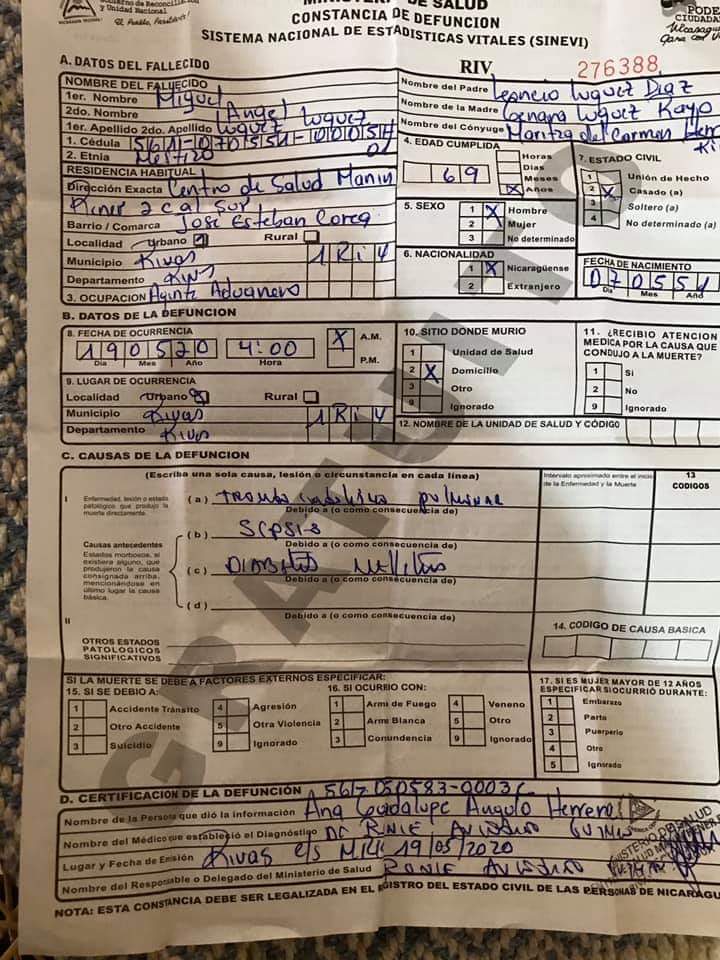 Gobierno de Reconciliación
y Unidad Nacional
El Pueblo, Presidente!
DE SALUD
CONSTANCIA DE DEFUNCION
SISTEMA NACIONAL DE ESTADISTICAS VITALES (SINEVI)
PODE
CIUDADA
A. DATOS DEL FALLECIDO
RIV
276388
NOMBRE DEL FALLECIDO
1er. Nombre Miguel
2do. Nombre Angel
1er. Apellido 2do. Apellido Luquez Luquez
1. Cédula 561-070551-0005H
2. Etnia Mestizo 01
RESIDENCIA HABITUAL
Dirección Exacta Centro de Salud
2 c al Sur
Barrio / Comarca José Esteban
Localidad Urbano Rural
Municipio Rivas
Departamento Rivas
3. OCUPACION Aduanero
Nombre del Padre Leoncio Luquez Diaz
Nombre de la Madre Genara Luquez
Nombre del Cónyuge Maritza del Carmen
4. EDAD CUMPLIDA
69
Horas
Dias
Meses
X Años
5. SEXO
1 X Hombre
2 Mujer
3 No determinado
6. NACIONALIDAD
1 X Nicaragüense
2 Extranjero
7. ESTADO CIVIL
1 Unión de Hecho
2 X Casado (a)
3 Soltero (a)
4 No determinado (a)
FECHA DE NACIMIENTO
070551
Dia Mes Año
B. DATOS DE LA DEFUNCION
8. FECHA DE OCURRENCIA
190520 4:00
Dia Mes Año Hora
X A.M.
P.M.
9. LUGAR DE OCURRENCIA
Localidad Urbano Rural
Municipio Rivas
Departamento Rivas
10. SITIO DONDE MURIO
1 Unidad de Salud
2 X Domicilio
3 Otro
9 Ignorado
11. ¿RECIBIO ATENCION
MEDICA POR LA CAUSA QUE
CONDUJO A LA MUERTE?
1 Si
2 No
9 Ignorado
12. NOMBRE DE LA UNIDAD DE SALUD Y CÓDIGO
C. CAUSAS DE LA DEFUNCION
(Escriba una sola causa, lesión o circunstancia en cada línea)
Intervalo aproximado entre el inicio
de la Enfermedad y la Muerte
13
CODIGOS
I
Enfermedad, lesión o estado
patológico que produjo la
muerte directamente.
(a) pulmonar
Debido a (o como consecuencia de)
(b) SEPSIS
Debido a (o como consecuencia de)
Causas antecedentes
Estados morbosos, si
existiera alguno, que
produjeron la causa
consignada arriba,
mencionándose en
último lugar la causa
básica.
(c) DIABETES MELLITUS
Debido a (o como consecuencia de)
(d)
Debido a (o como consecuencia de)
II
OTROS ESTADOS
PATOLOGICOS
SIGNIFICATIVOS
14. CODIGO DE CAUSA BASICA
SI LA MUERTE SE DEBE A FACTORES EXTERNOS ESPECIFICAR:
15. SI SE DEBIO A:
1 Accidente Tránsito
2 Otro Accidente
3 Suicidio
4 Agresión
5 Otra Violencia
9 Ignorado
16. SI OCURRIO CON:
1 Arma de Fuego
2 Arma Blanca
3 Conundencia
4 Veneno
5 Otro
9 Ignorado
17. SI ES MUJER MAYOR DE 12 AÑOS
ESPECIFICAR SI OCURRIÓ DURANTE:
1 Embarazo
2 Parto
3 Puerperio
4 Otro
5 Ignorado
GRATUITO
D. CERTIFICACION DE LA DEFUNCIÓN
Nombre de la Persona que dió la información Ana Guadalupe Angulo Herrera
Nombre del Médico que estableció el Diagnóstico
Lugar y Fecha de Emisión Rivas 19/05/2020
Nombre del Responsable o Delegado del Ministerio de Salud
MINISTERIO DE SALUD
NOTA: ESTA CONSTANCIA DEBE SER LEGALIZADA EN EL REGISTRO DEL ESTADO CIVIL DE LAS PERSONAS DE NICARAGU